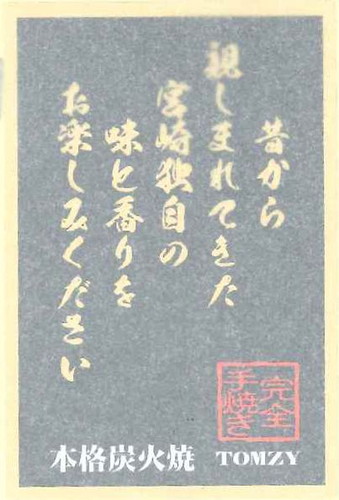 昔から
親しまれてきた
宮崎独自の
味と香りを
お楽しみください
完全
手焼き
本格炭火焼 TOMZY